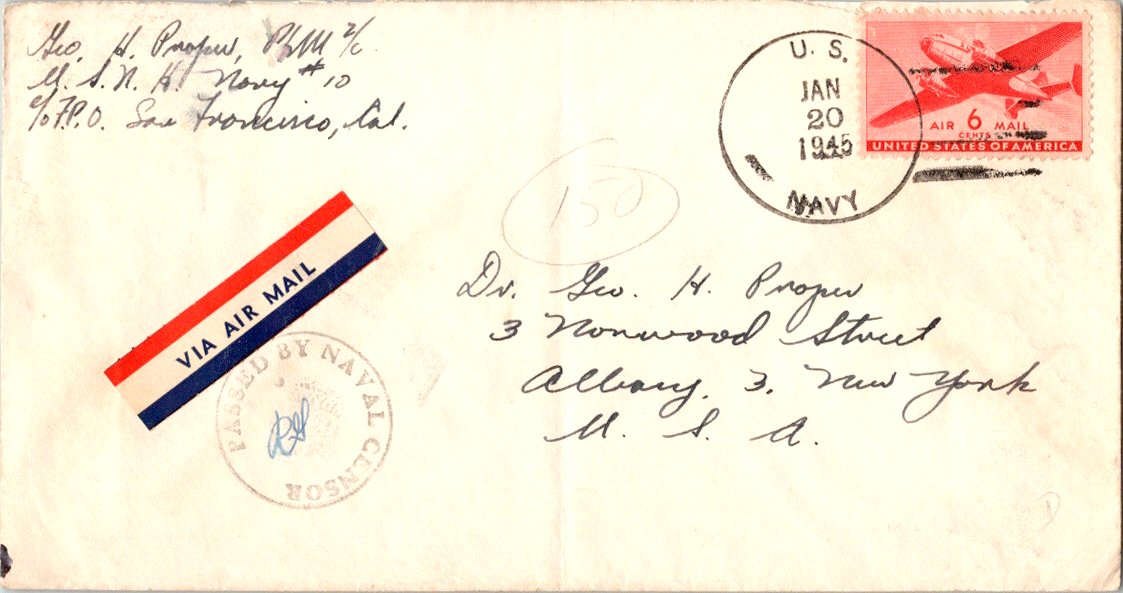 Geo. H. Proper, PhM 2/c
U. S. N. H. Navy #10
c/o F.P.O. San Francisco, Cal.
U. S.
JAN
20
1945
NAVY
AIR 6 MAIL
CENTS
UNITED STATES OF AMERICA
150
VIA AIR MAIL
PASSED BY NAVAL CENSOR
Dr. Geo. H. Proper
3 Norwood Street
Albany, 3, New York
U. S. A.